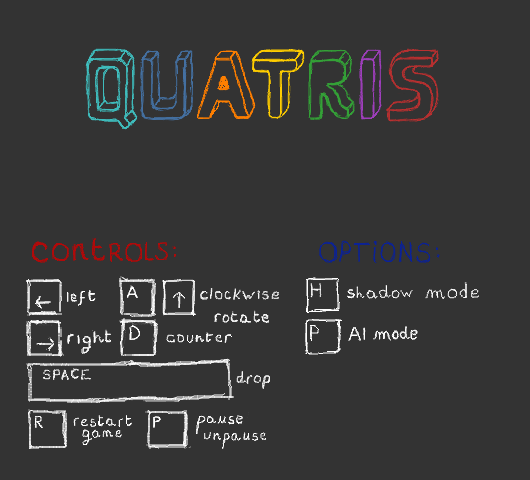 QUATRIS
CONTROLS:
← left
A ↑ clockwise
rotate
→ right
D counter
SPACE drop
R restart
game
P pause
unpause
OPTIONS:
H shadow mode
P AI mode